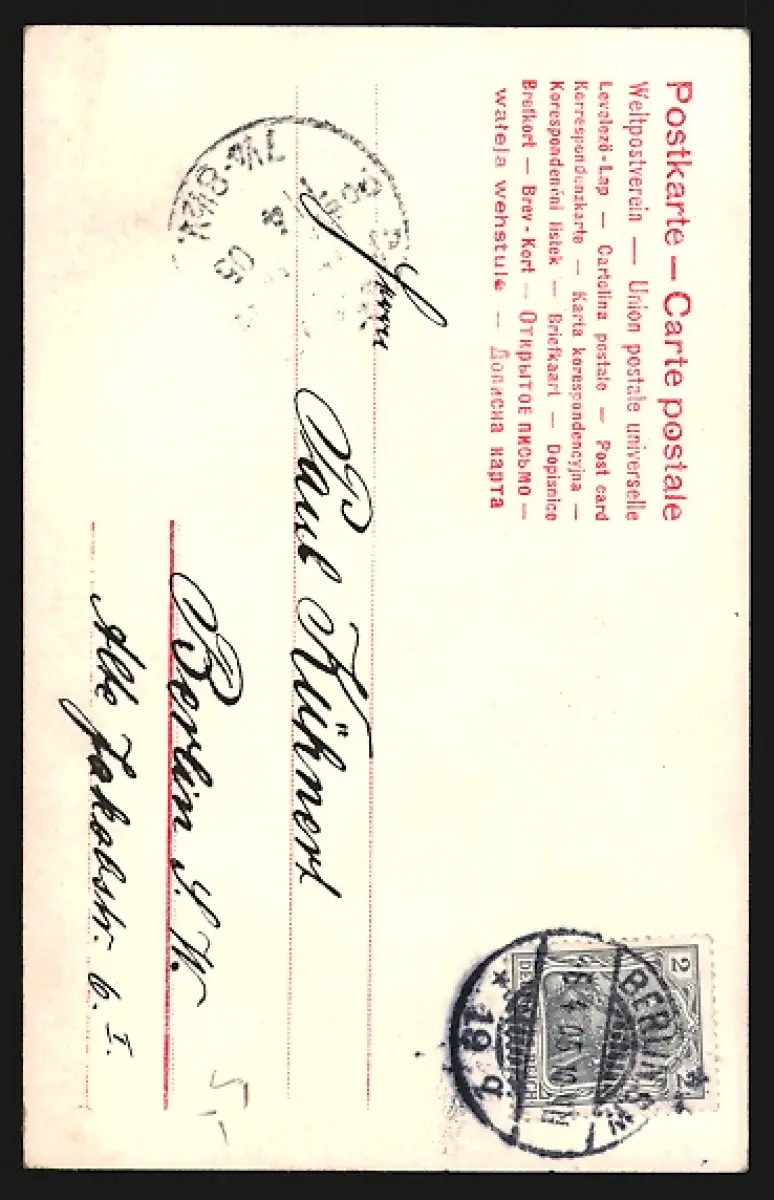 Postkarte — Carte postale
Weltpostverein — Union postale universelle
Levelező-Lap — Cartolina postale — Post card
Korrespondenzkarte — Karta korespondencyjna —
Korespondenční listek — Briefkaart — Dopisnica
Brefkort — Brev-Kort — Открытое письмо —
wateja wehstule — Дописна карта
Paul Kühnert
Berlin S. W.
Alte Jakobstr. 6. I.
5,-
2 2
BERLIN
5.4.05.10
19 a